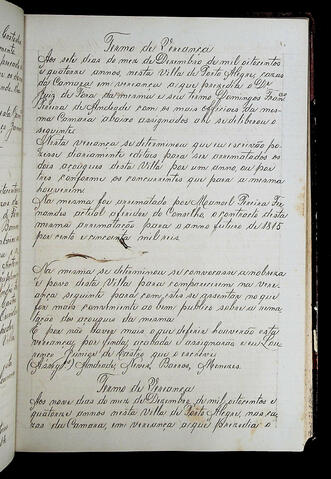 Termo de Vereança
Aos sete dias do mez de Dezembro de mil oitocentos
e quatorze annos, nesta Villa de Porto Alegre, cazas
da Camara em vereança a que prezidio o Dr.
Juiz de Fora da mesma e seu termo Domingos Fran.co
de Andrade com os mais officiaes da mes
ma Camara abaixo assignados ahi se deliberou o
seguinte
Nesta vereança se determinou que o escrivão po
zesse diariamente editaes para ser arrematados os
dois açougues desta Villa por um anno, ou por
tres conforme os concurrentes que para a mesma
houverem
Na mesma foi arrematado por Manoel Pereira Fer
nandes actual aferidor do Conselho, o contracto desta
mesma arrematação para o anno futuro de 1815
por cento e cincoenta mil reis
Na mesma se determinou se convocasse a nobreza
e povo desta Villa para comparecerem na vere
ança seguinte para com estes se assentar no que
for mais conveniente ao bem publico sobre a rema
tação dos açougues da mesma
E por não haver mais o que deferir houverão esta
vereança por finda, acabada e assignarão e eu Lou
renço Junior de Castro que o escrevi
(Assig.os) Andrade, Barros, Menezes
Termo de Vereança
Aos nove dias do mez de Dezembro de mil oitocentos e
quatorze annos nesta Villa de Porto Alegre, nas ca
zas de Camara, em vereança a que prezidio o